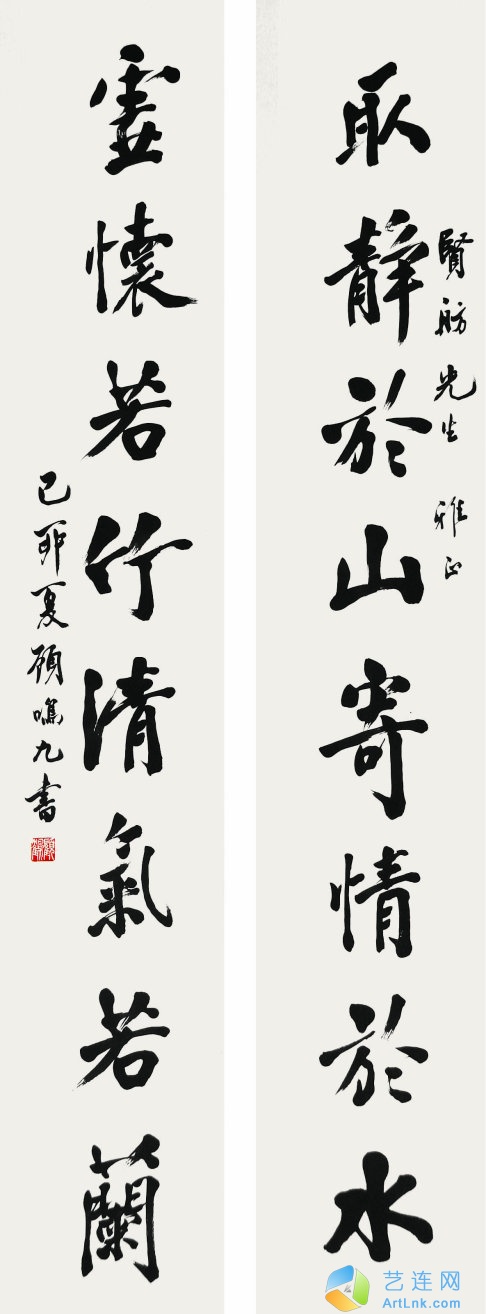 取靜於山寄情於水
賢舫先生 雅正
虛懷若竹清氣若蘭
己卯夏顧鳴九書
艺连网
ArtLnk.com